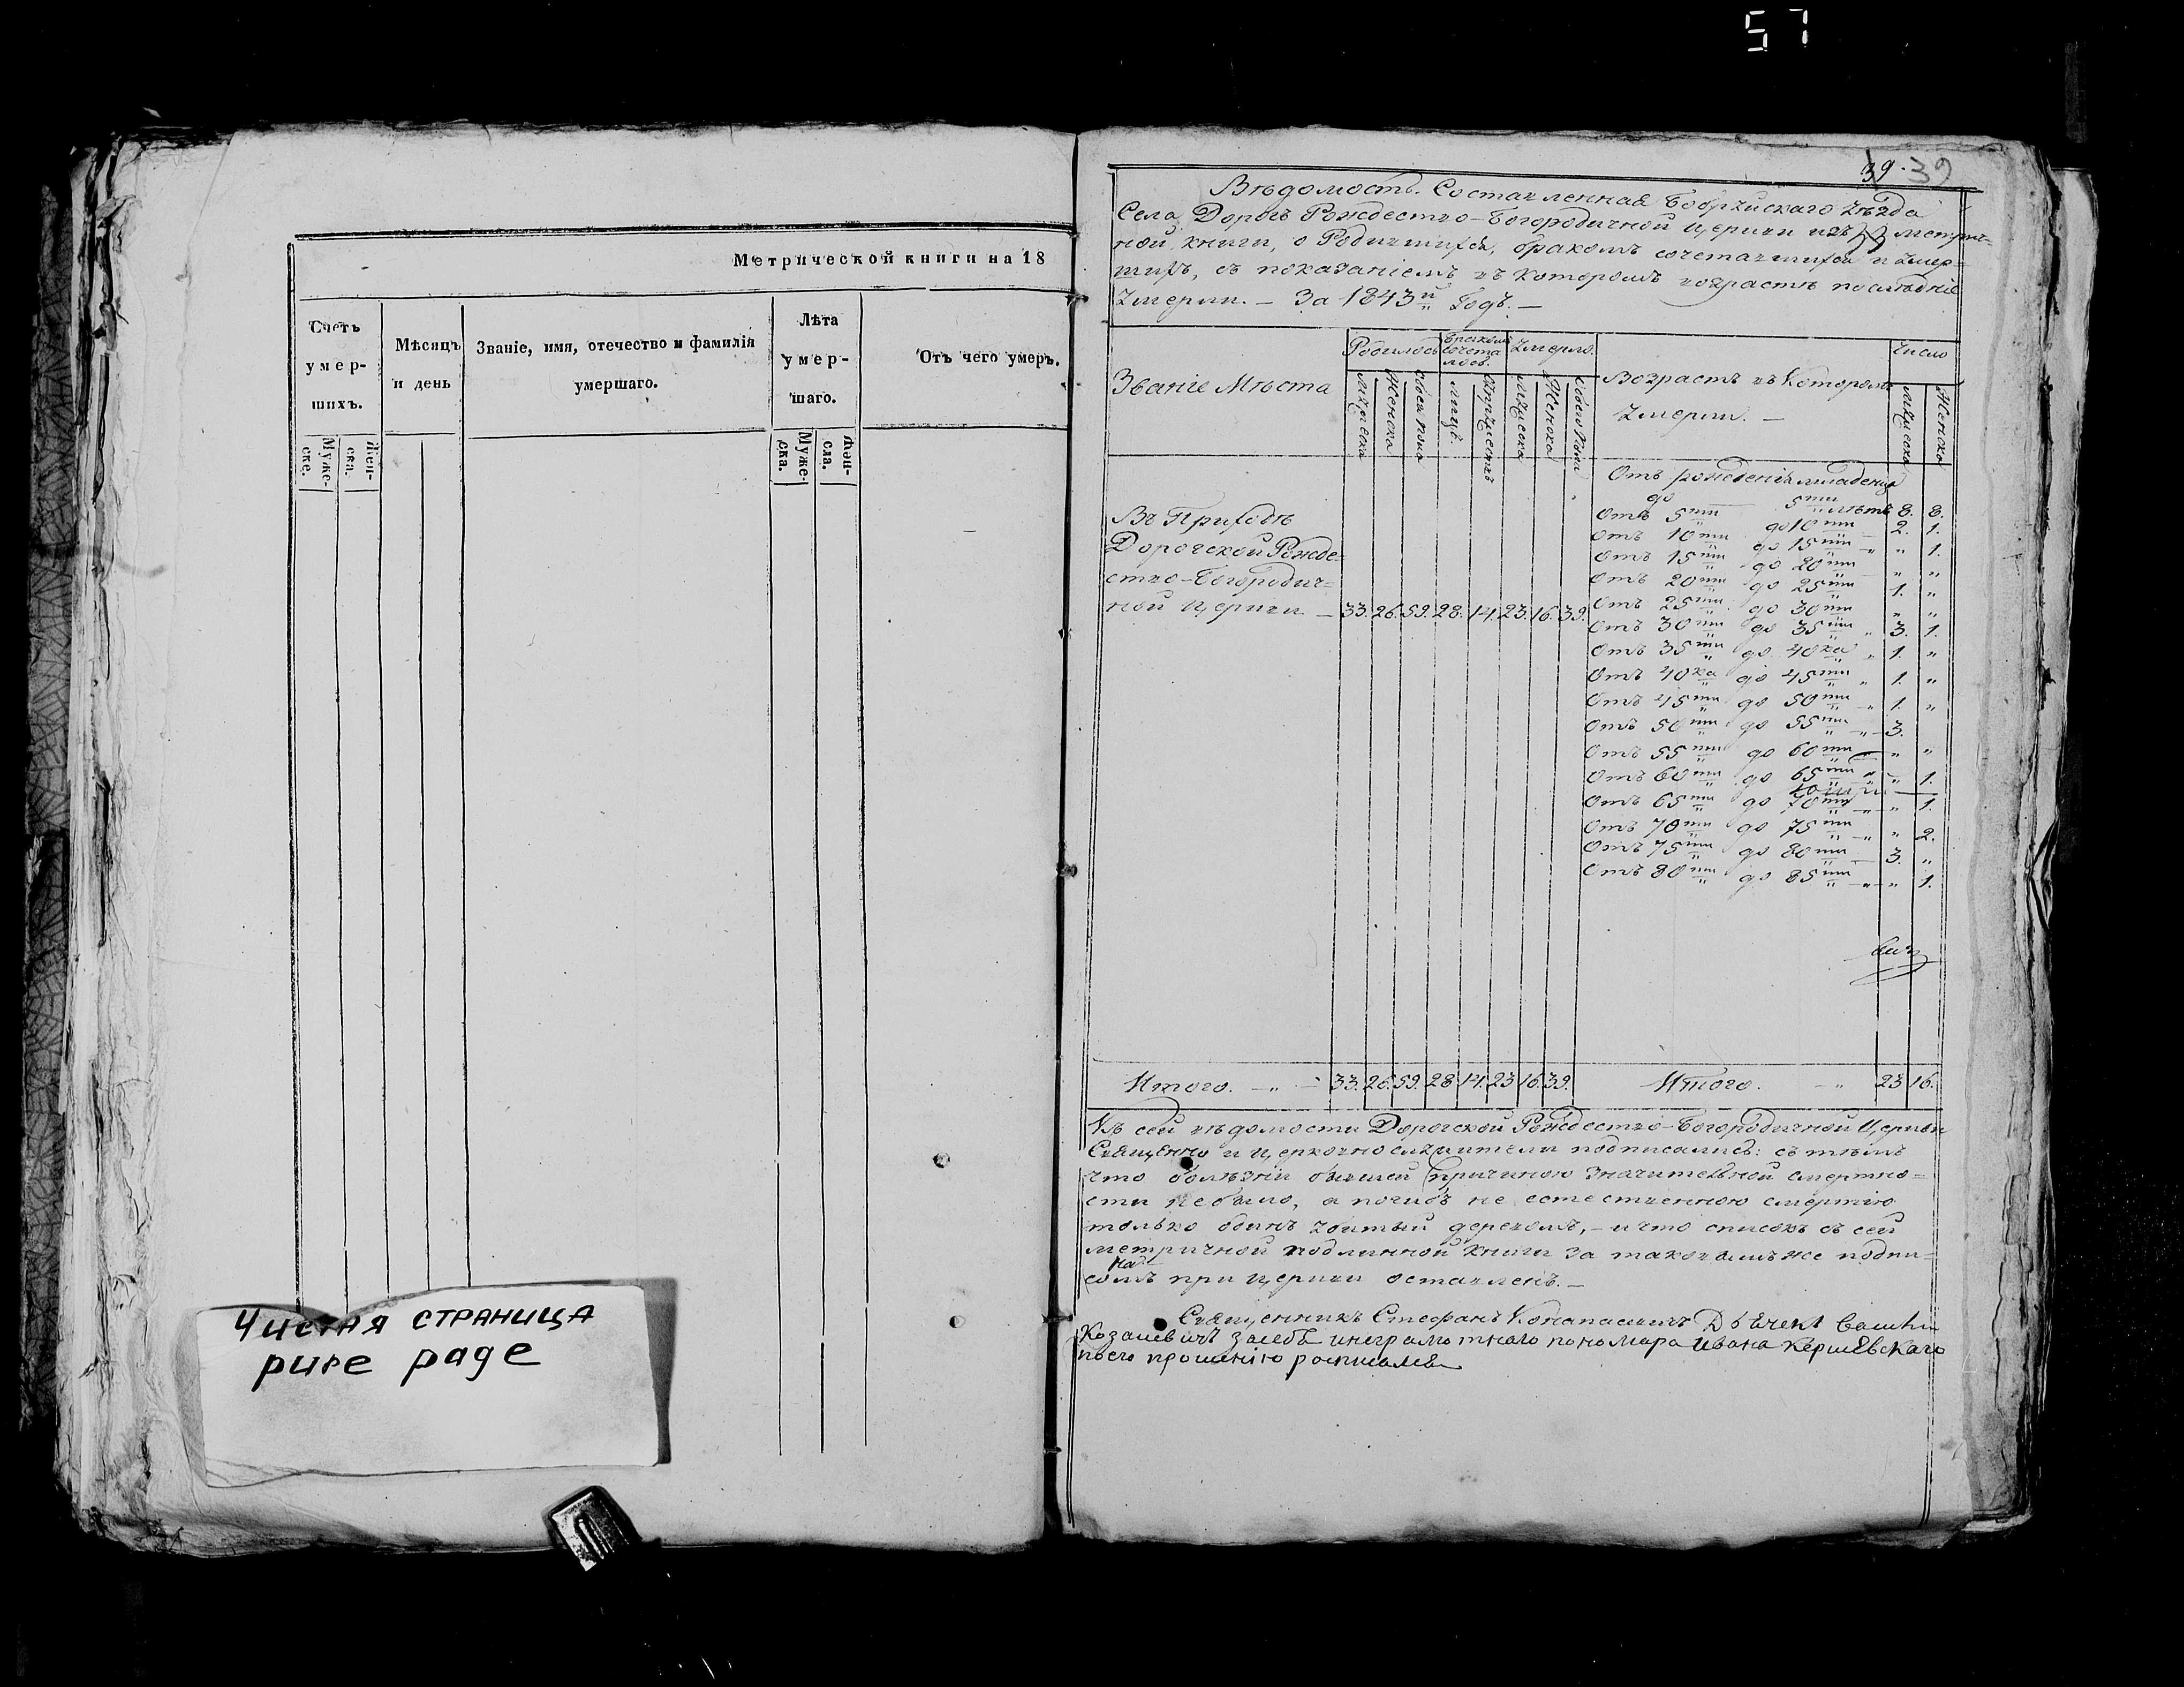 57
Метрической книги на 18
Счетъ умер- шихъ.
Мѣсяцъ и день
Званіе, имя, отечество и фамилія умершаго.
Лѣта умер- шаго.
Отъ чего умеръ.
Муже- ске.
Жен- ска.
Муже- ска.
Чистая страница
pure page
39. 39
Вѣдомость. Составленная Бобруйскаго Уѣзда
Села Дорогъ Рождество-Богородичной Церкви изъ метрич-
ной книги, о Родившихся, бракомъ сочетавшихся и умер-
шихъ, съ показаніемъ въ которомъ возрастѣ послѣдніе
умерли. – За 1843й Годъ. –
Званіе Мѣста
Родилось
Бракомъ сочеталось.
Умерло.
Возрастъ въ Которомъ умерли. –
Число
Мужеска
Женска
Обоего пола
Мужеска
Женска
Обоего пола
Мужеска
Женска
Отъ рожденія младенца
до 5ти лѣтъ 8. 8.
Отъ 5ти до 10ти 2. 1.
Отъ 10ти до 15ти „ 1.
Отъ 15ти до 20ти „ „
Отъ 20ти до 25ти 1. „
Отъ 25ти до 30ти „ „
Отъ 30ти до 35ти 3. 1.
Отъ 35ти до 40ка 1. „
Отъ 40ка до 45ти 1. „
Отъ 45ти до 50ти 1. „
Отъ 50ти до 55ти 3.
Отъ 55ти до 60ти „ „
Отъ 60ти до 65ти „ 1.
Отъ 65ти до 70ти „ 1.
Отъ 70ти до 75ти „ 2.
Отъ 75ти до 80ти 3. „
Отъ 80ти до 85ти „ 1.
Въ Приходѣ
Дорогской Рожде-
ство-Богородич-
ной Церкви – 33. 26. 59. 28. 14. 23. 16. 39.
Итого. 33. 26. 59. 28. 14. 23 16. 39.
Итого. 23 16.
Къ сей вѣдомости Дорогской Рождество-Богородичной Церкви
Священно и церковнослужители подписались: съ тѣмъ
что болѣзни бывшей причиною значительной смертно-
сти не было, а погибъ не естественною смертію
только одинъ убитый деревомъ, – и что списокъ съ сей
метричной подлинной книги за таковымъ же подпи-
сомъ при церкви оставленъ. –
Священникъ Стефанъ
Козакевичъ засебе инеграмотнаго пономара Ивана Кершевскаго
поего прошенію росписался